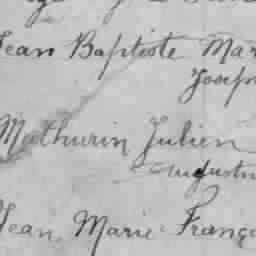 Jean Baptiste Mar
Joseph
Mathurin Julien
Augustin
Jean Marie Franço